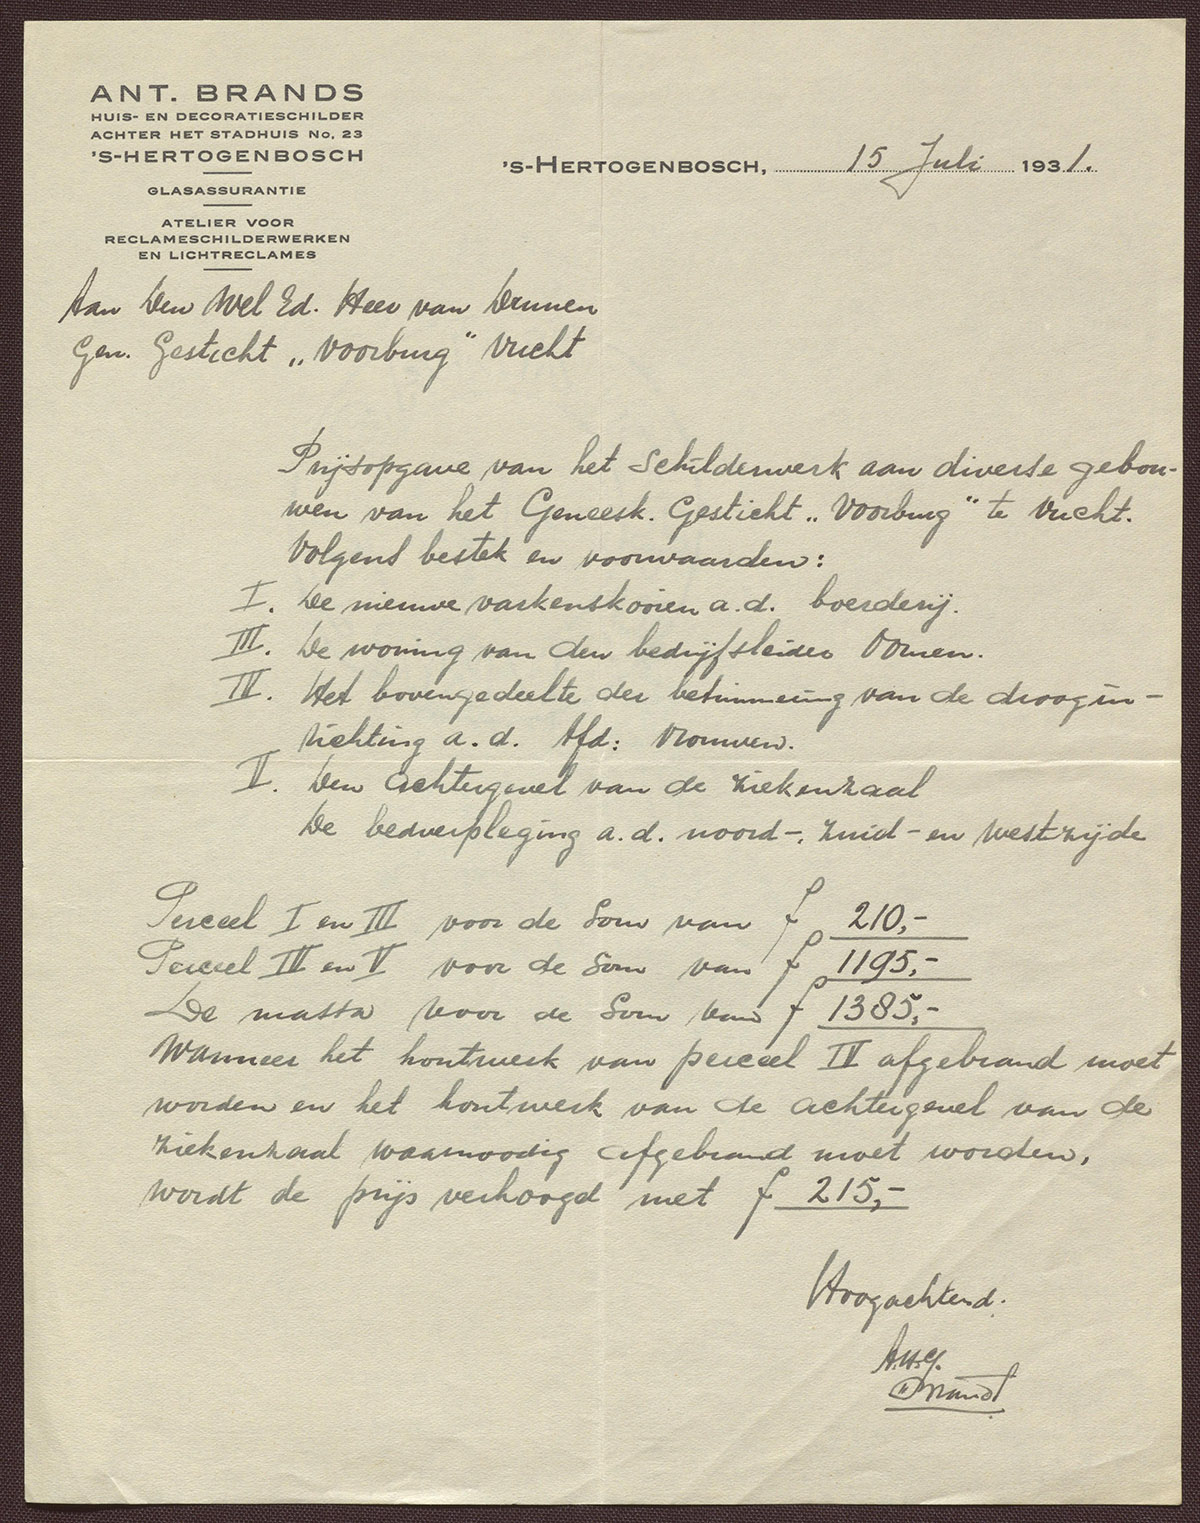 ANT. BRANDS
HUIS- EN DECORATIESCHILDER
ACHTER HET STADHUIS No. 23
'S-HERTOGENBOSCH
GLASASSURANTIE
ATELIER VOOR
RECLAMESCHILDERWERKEN
EN LICHTRECLAMES
'S-HERTOGENBOSCH, 15 Juli 1931.
Aan Den Wel Ed. Heer van Drunen
Gen. Gesticht „Voorburg" Vucht
Prijsopgave van het Schilderwerk aan diverse gebou-
wen van het Geneesk. Gesticht „Voorburg" te Vucht.
Volgens bestek en voorwaarden:
I. De nieuwe varkenskooien a.d. boerderij.
III. De woning van den bedrijfsleider Oomen.
IV. Het bovengedeelte der betimmering van de droogin-
richting a.d. Afd: Vrouwen.
V. Den achtergevel van de ziekenzaal
De bedverpleging a.d. noord-, zuid- en westzijde
Perceel I en III voor de Som van f 210,-
Perceel IV en V voor de Som van f 1195,-
De massa voor de Som van f 1385,-
Wanneer het houtwerk van perceel IV afgebrand moet
worden en het houtwerk van de achtergevel van de
ziekenzaal waarnoodig afgebrand moet worden,
wordt de prijs verhoogd met f 215,-
Hoogachtend.
Brands